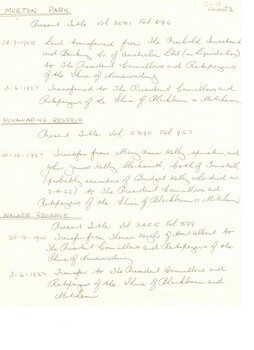 MORTON PARK
Present Title Vol 3081 Fol 096
12-9-1905 Land transferred from The Freehold Investment
and Banking Co of Australia Ltd (in liquidation)
to The President Councillors and Ratepayers
of the Shire of Nunawading
3-6-1927 Transferred to The President Councillors and
Ratepayers of the Shire of Blackburn & Mitcham
NUNAWADING RESERVE
Present Title Vol 5295 Fol 957
10-10-1927 Transfer from Mary Jane Kelly spinster and
John James Kelly blacksmith, both of Tunstall
(probably executors of Bridget Kelly who died on
2-8-22) to The President Councillors and
Ratepayers of the Shire of Blackburn & Mitcham
WALKER RESERVE
Present Title Vol 3455 Fol 899
20-9-1910 Transfer from Thomas of Mont Albert to
The President Councillors and Ratepayers of the
Shire of Nunawading
3-6-1927 Transfer to The President Councillors and
Ratepayers of the Shire of Blackburn and
Mitcham